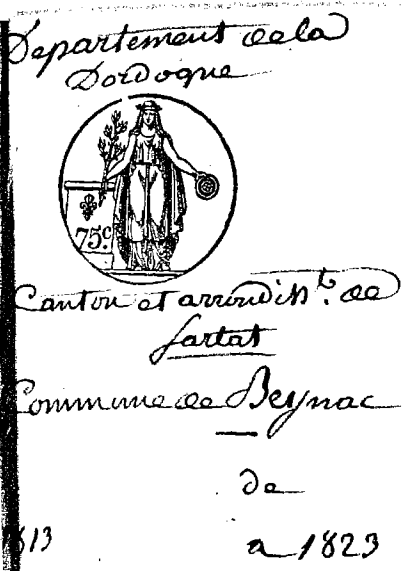 Departement de la
Dordogne
75c.
Canton et arrondisst. de
Sarlat
Commune de Beynac
de
1813 a 1823